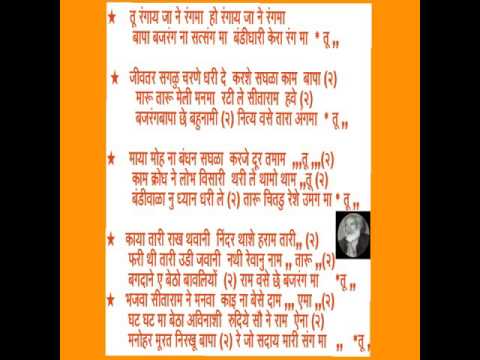 ★ तू रंगाय जा ने रंगमा हो रंगाय जा ने रंगमा
बापा बजरंग ना सत्संग मा बंडीधारी केरा रंग मा * तू ,,
★ जीवतर सगळु चरणे धरी दे करशे सघळा काम बापा (२)
मारू तारू मेली मनमा रटी ले सीताराम हवे (२)
बजरंगबापा छे बहुनामी (२) नित्य वसे तारा अगमा * तू ,,
★ माया मोह ना बंधन सघळा करजे दूर तमाम ,,,तू ,,,(२)
काम क्रोध ने लोभ विसारी थरी ले थामो थाम ,,तू (२)
बंडीवाळा नु ध्यान धरी ले (२) तारू चितडु रेशे उमग मा * तू ,,
★ काया तारी राख थवानी निंदर थाशे हराम तारी,, (२)
फरी थी तारी उडी जवानी नथी रेवानु नाम ,, तारू ,,(२)
बगदाने ए बेठो बावलियों (२) राम वसे छे बजरंग मा *तू ,,
★ भजवा सीताराम ने मनवा काइ ना बेसे दाम ,,, एमा ,,(२)
घट घट मा बेठा अविनाशी रुदिये सौ ने राम ऐना (२)
मनोहर मूरत निरखु बापा (२) रे जो सदाय मारी संग मा ,, *तू ,,